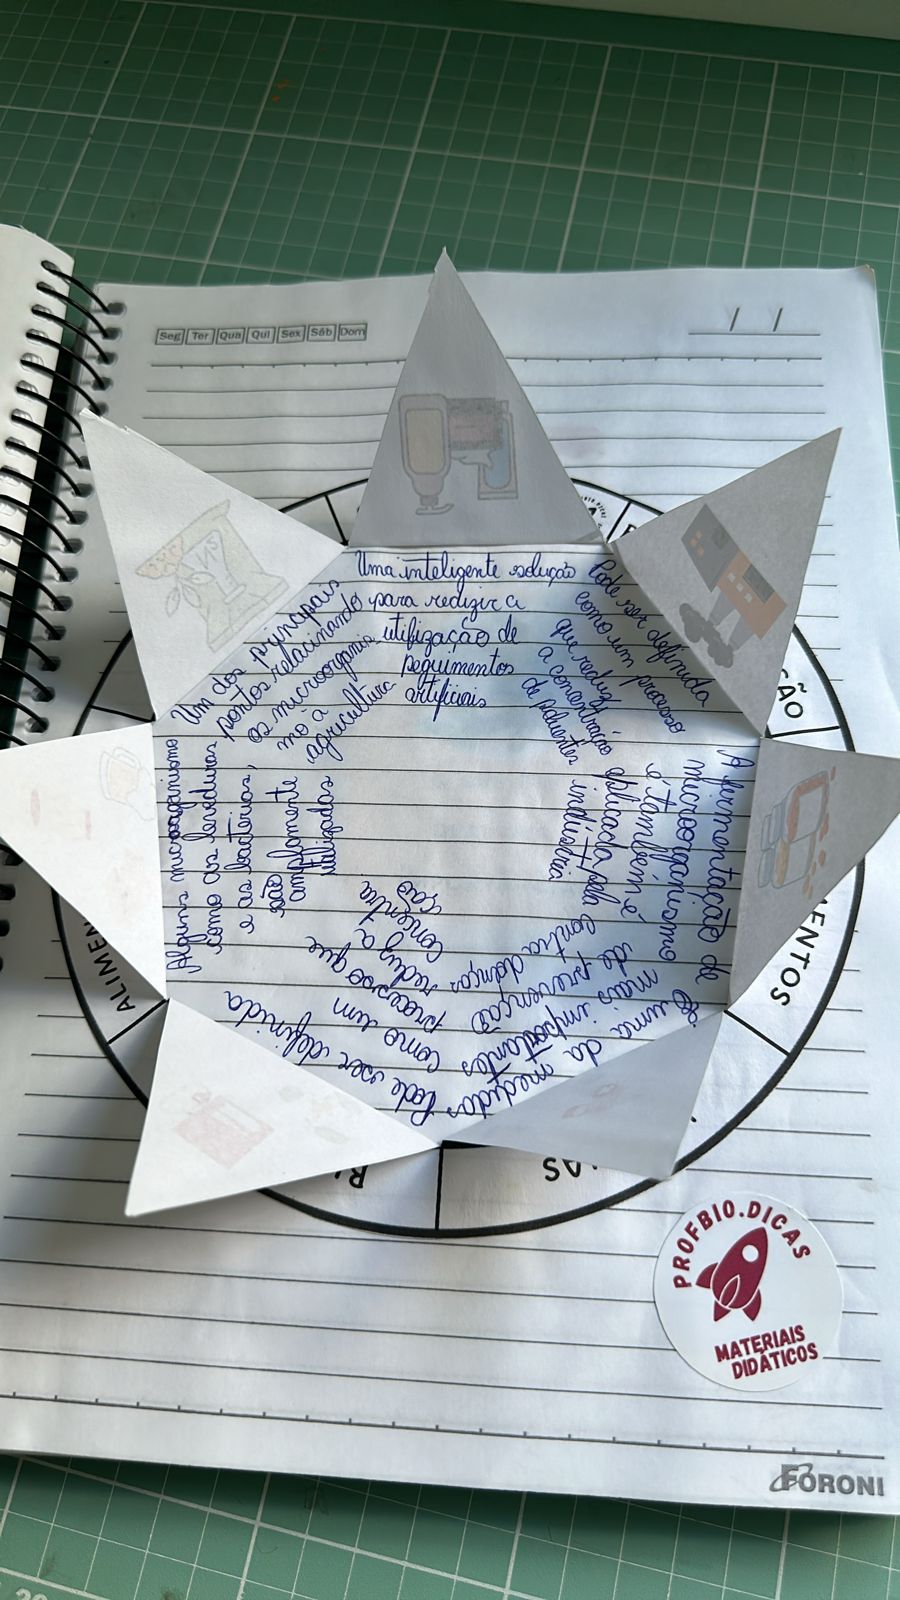 Seg Ter Qua Qui Sex Sáb Dom
/ /
Uma inteligente solução
para reduzir a
utilização de
peguimentos
artificiais
Pode ser definida
como um processo
que reduz
a concentração
de poluentes
A fermentação de
microorganismo
é também é
aplicada pela
indústria
É uma da medidas
mais importantes
de prevenção
contra doenças
Pode ser definida
como um
processo que
reduz a
concentra
ção
Alguns microorganismo
como as leveduras
e as bactérias,
são
amplamente
utilizados
Um dos principais
pontos relacinando
os microorganis
mo a
agricultura
ÇÃO
MENTOS
AS
BI
ALIMEN
PROFBIO.DICAS
MATERIAIS
DIDÁTICOS
FORONI